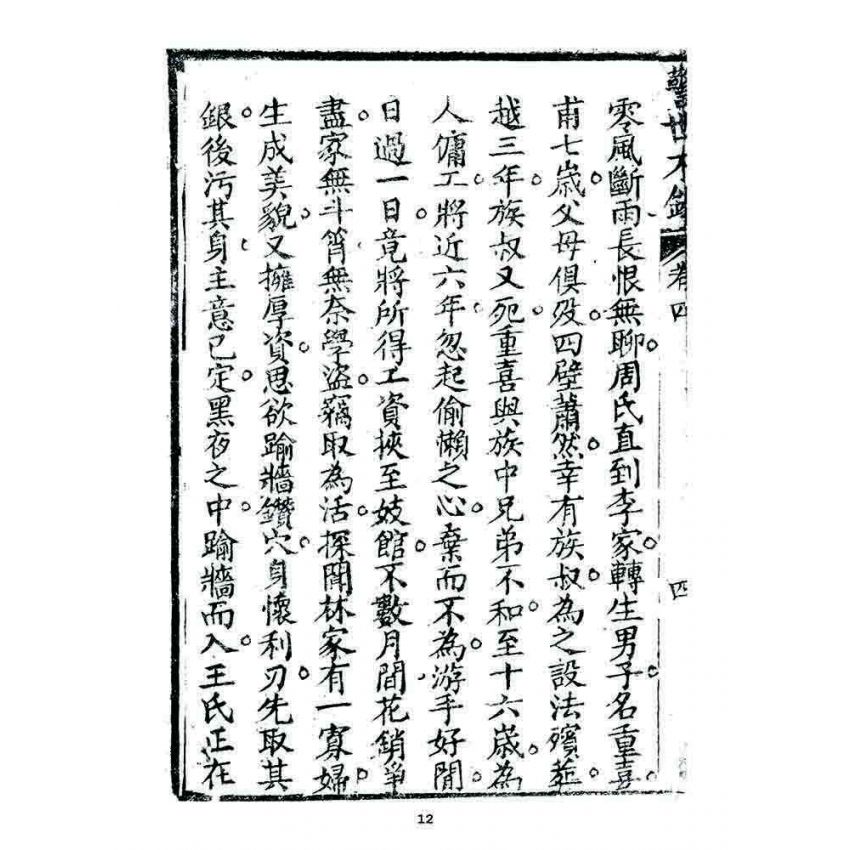 警世木鐸 卷四 四
零風斷雨長恨無聊周氏直到李家轉生男子名重喜
甫七歲父母俱歿四壁蕭然幸有族叔為之設法殯葬
越三年族叔又死重喜與族中兄弟不和至十六歲為
人傭工將近六年忽起偷懶之心棄而不為游手好閒
日過一日竟將所得工資挾至妓館不數月間花銷爭
盡家無斗筲無奈學盜竊取為活探聞林家有一寡婦
生成美貌又擁厚資思欲踰牆鑽穴身懷利刃先取其
銀後污其身主意已定黑夜之中踰牆而入王氏正在
12